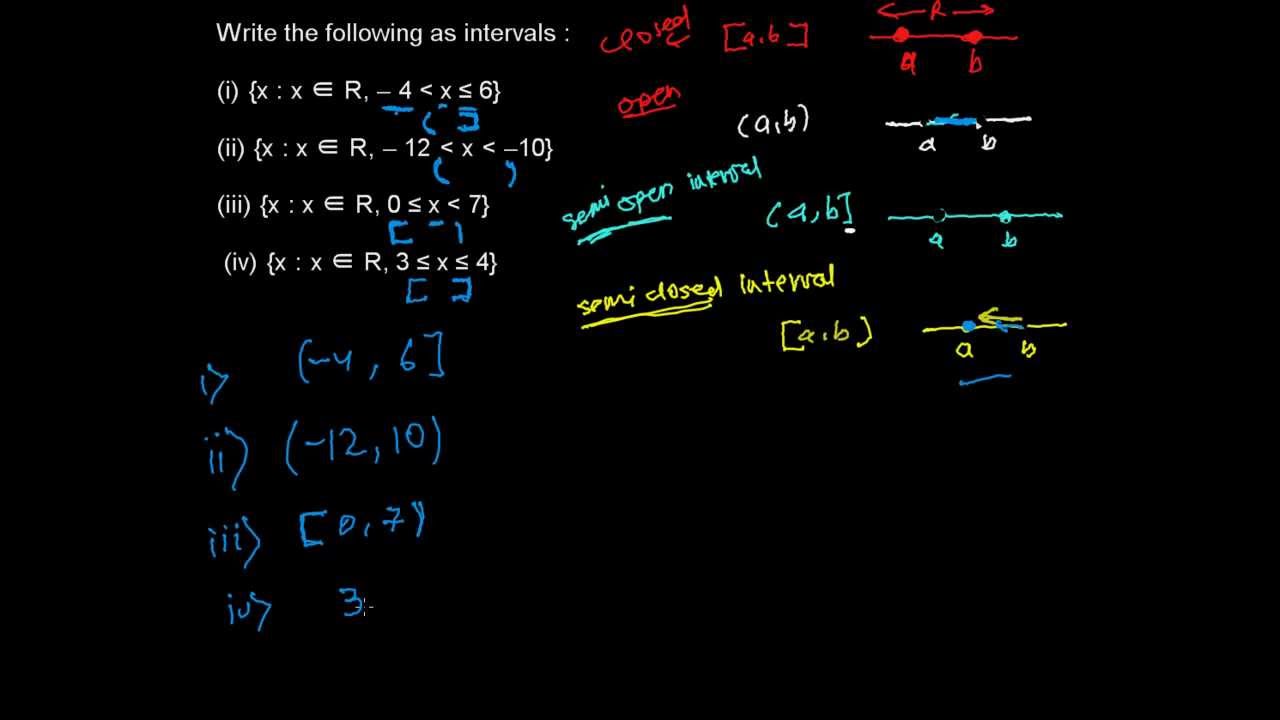 Write the following as intervals :
(i) {x : x ∈ R, – 4 < x ≤ 6}
( ]
(ii) {x : x ∈ R, – 12 < x < –10}
( )
(iii) {x : x ∈ R, 0 ≤ x < 7}
[ )
(iv) {x : x ∈ R, 3 ≤ x ≤ 4}
[ ]
i) (-4, 6]
ii) (-12, 10)
iii) [0, 7)
iv) 3
closed [a,b]
R
a b
open
(a,b)
a b
semi open interval
(a,b]
a b
semi closed interval
[a,b)
a b